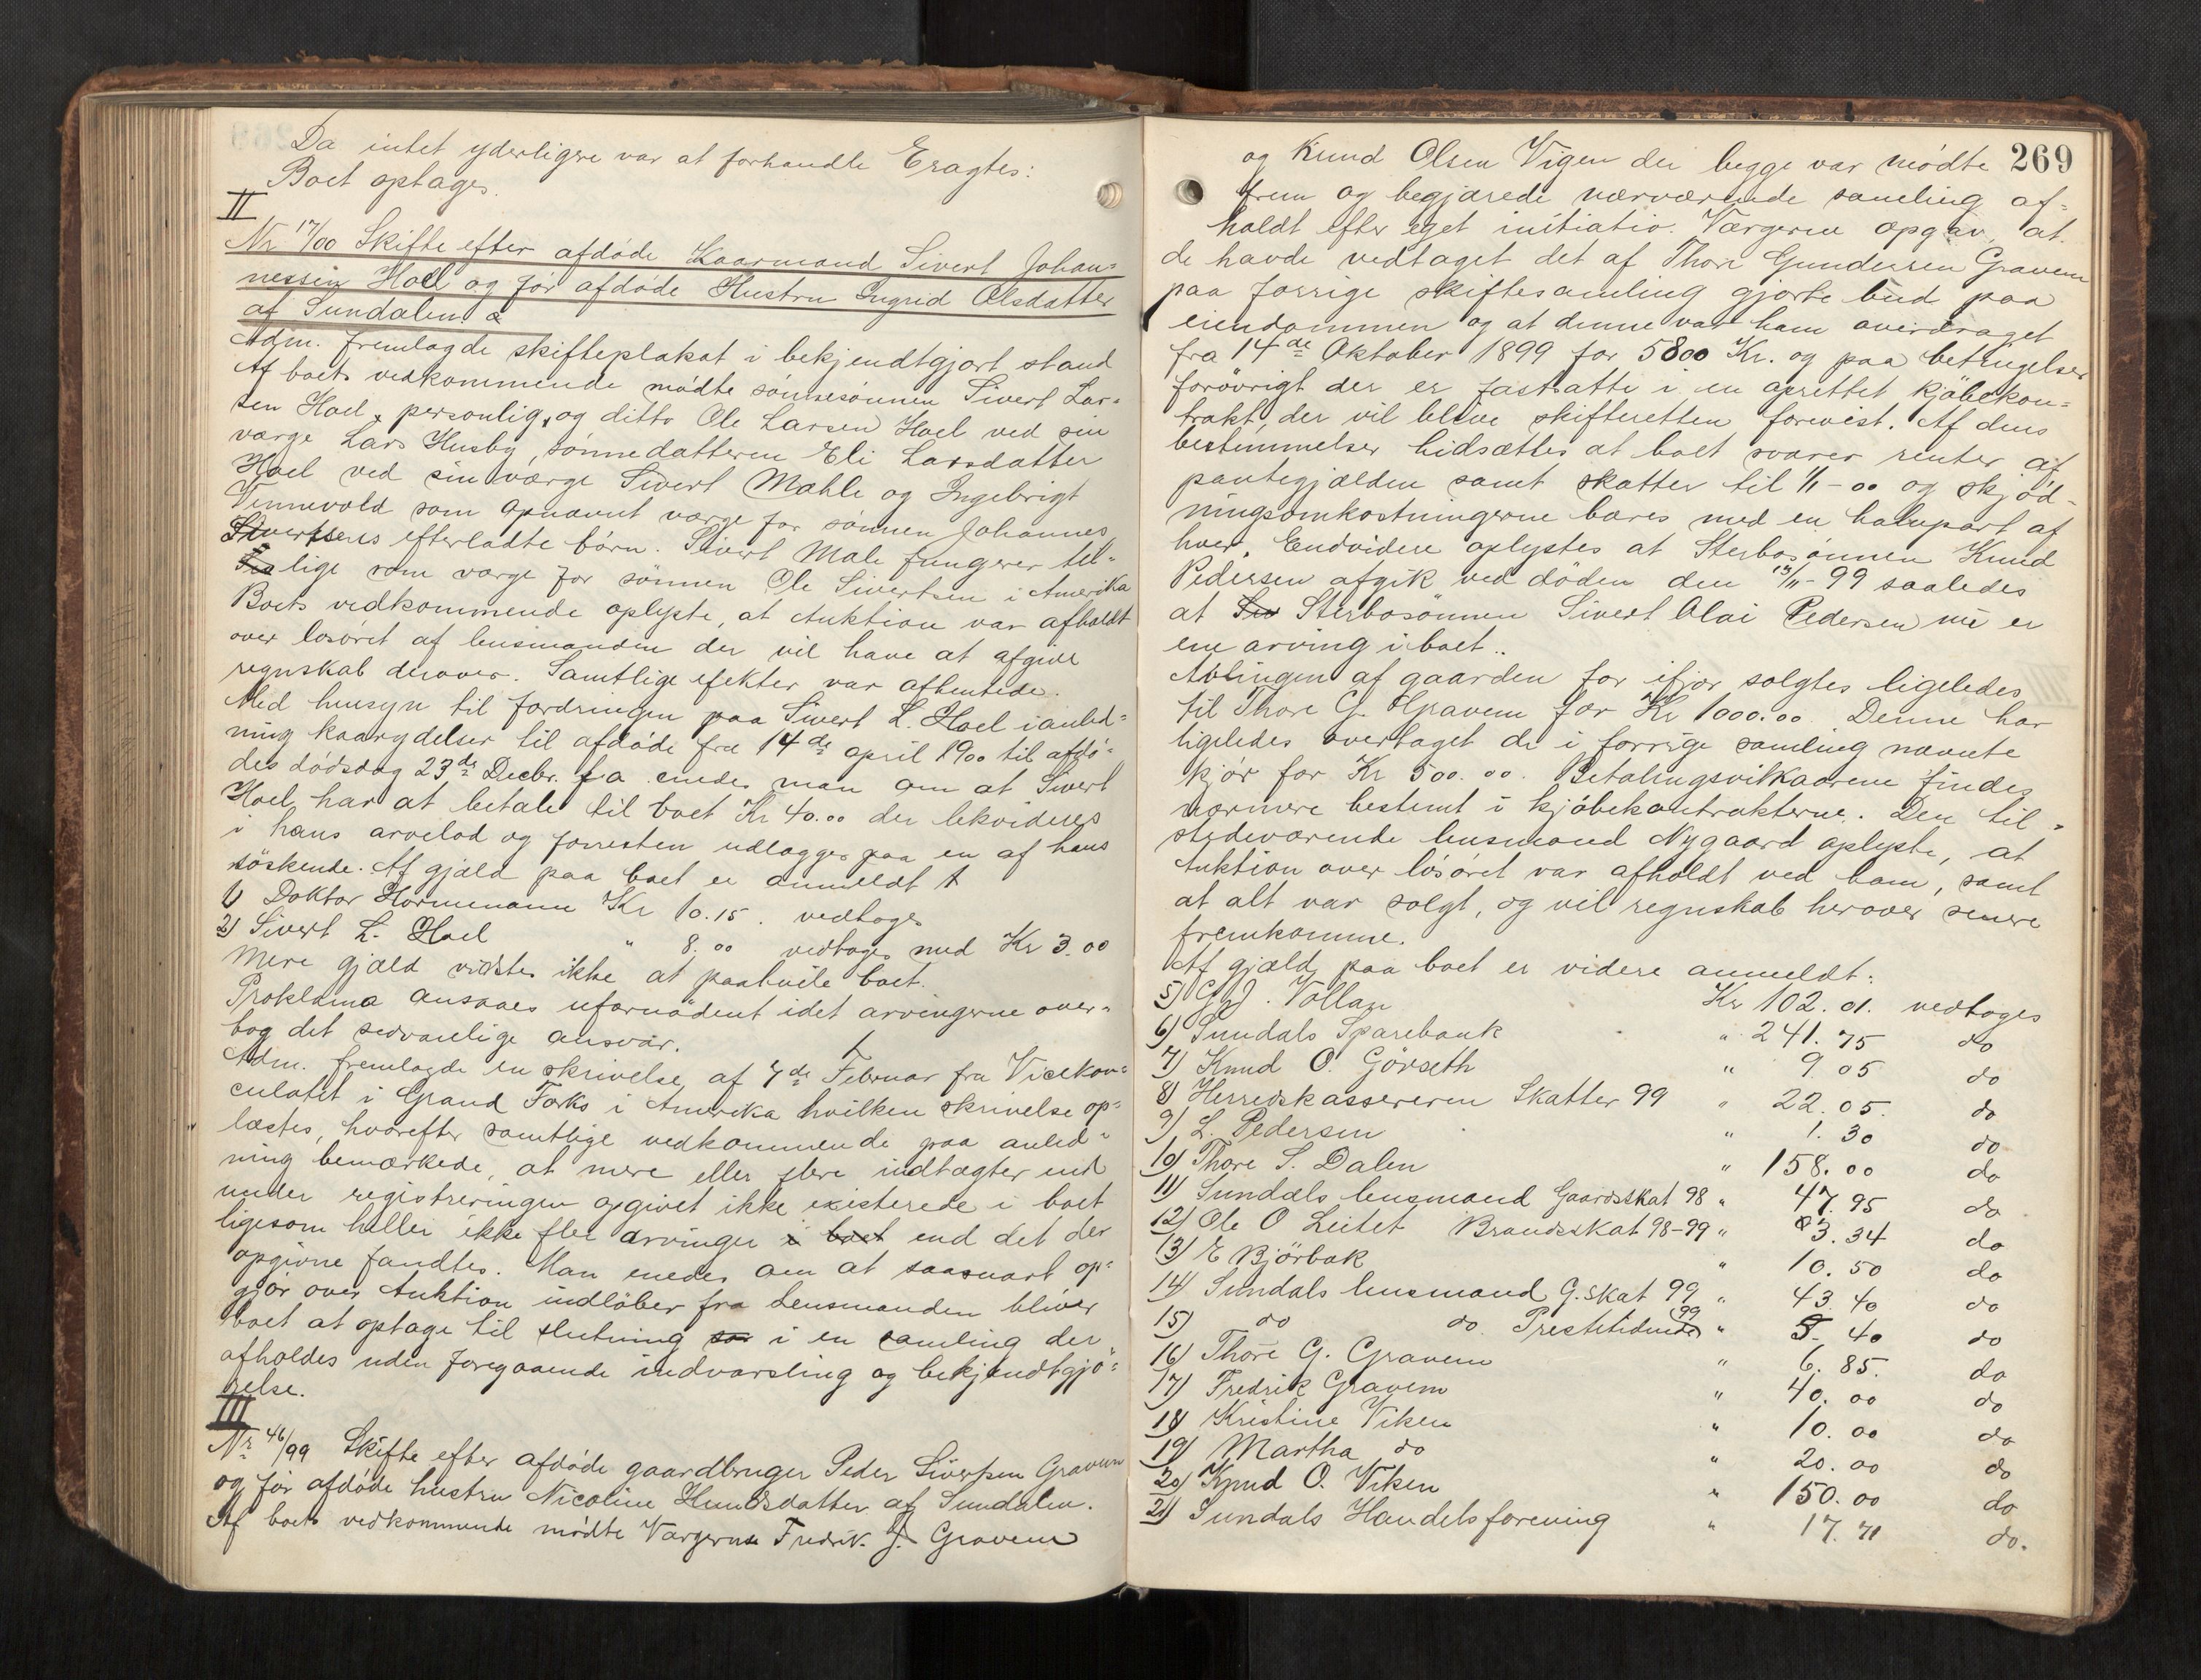 Da intet yderligere var at forhandle Eragtes:
Boet optages.
II
Nr 17/00 Skifte efter afdøde Kaarmand Sivert Johan=
nessen Hoel og før afdøde Hustru Ingrid Olsdatter
af Sundalen.
Adm. fremlagde skifteplakat i bekjendtgjort stand
Af boets vedkommende mødte sønnesønnen Sivert Lar=
sen Hoel, personlig, og ditto Ole Larsen Hoel ved sin
værge Lars Husby, sønnedatteren Eli Larsdatter
Hoel ved sin værge Sivert Mæhle og Ingebrigt
Vennevold som opnævnt værge for sønnen Johannes
Sivertsens efterladte børn. Sivert Male fungerer til=
lige som værge for sønnen Ole Sivertsen i Amerika
Boets vedkommende oplyste, at Auktion var afholdt
over løsøret af lensmanden der vil have at afgive
regnskab derover. Samtlige efekter var afhentede.
Med hensyn til fordringen paa Sivert L. Hoel i anled=
ning kaarydelser til afdøde fra 14de april 1900 til afdø=
des dødsdag 23de Decbr. f.a. enedes man om at Sivert
Hoel har at betale til boet Kr 40.00 der lekvideres
i hans arvelod og forresten udlægges paa en af hans
søskende. Af gjæld paa boet er anmeldt
1) Doktor Hormemann Kr 10.15. vedtoges
2) Sivert L. Hoel " 8.00 vedtoges med Kr 3.00
Mere gjæld vidstes ikke at paahvile boet.
Proklama ansaaes ufornødent idet arvingerne over=
tog det sedvanlige ansvar.
Adm. fremlagde en skrivelse af 7de Februar fra Vicekon=
culatet i Grand Forks i Amerika hvilken skrivelse op=
læstes, hvorefter samtlige vedkommende paa anled=
ning bemærkede, at mere eller flere indtægter end
under registreringen opgivet ikke existerede i boet
ligesom heller ikke fler arvinger i boet end det der
opgivne fandtes. Man enedes om at saasnart op=
gjør over Auktion indløber fra Lensmanden bliver
boet at optage til slutning som i en samling der
afholdes uden foregaaende indvarsling og bekjendtgjø=
relse.
III
Nr 46/99 Skifte efter afdøde gaardbruger Peder Sivertsen Gravem
og før afdøde hustru Nicoline Knudsdatter af Sundalen.
Af boets vedkommende mødte Værgerne Fredrik J. Gravem
269
og Knud Olsen Vigen der begge var mødte
frem og begjærede nærværende samling af=
holdt efter eget initiativ. Værgerne opgav, at
de havde vedtaget det af Thore Gundersen Gravem
paa forrige skiftesamling gjorte bud paa
eiendommen og at denne var ham overdraget
fra 14de Oktober 1899 for 5800 Kr. og paa betingelser
forøvrigt der er fastsatte i en oprettet kjøbekon=
trakt, der vil blive skifteretten forevist. Af dens
bestemmelser hidsættes at boet svarer renter af
pantegjælden samt skatter til 1/1-00 og skjød=
ningsomkostningerne bæres med en halvpart af
hver. Endvidere oplystes at Sterbosønnen Knud
Pedersen afgik ved døden den 13/11-99 saaledes
at Sterbosønnen Sivert Olai Pedersen nu er
ene arving i boet.
Avlingen af gaarden for ifjor solgtes ligeledes
til Thore G. Gravem for Kr 1000.00. Denne har
ligeledes overtaget de i forrige samling nævnte
kjør for Kr 500.00. Betalingsvilkaarene findes
nærmere bestemt i kjøbekontrakterne. Den til=
stedeværende lensmand Nygaard oplyste, at
Auktion over løsøret var afholdt ved ham, samt
at alt var solgt, og vil regnskab herover senere
fremkomme.
Af gjæld paa boet er videre anmeldt:
5) G. J. Vollan Kr 102.01. vedtoges
6) Sundals Sparebank " 241.75 do
7) Knud O. Gørseth " 9.05 do
8) Herredskassereren Skatter 99 " 22.05. do
9) L. Pedersen " 1.30 do
10) Thore S. Dalen " 158.00 do
11) Sundals lensmand Gaardsskat 98 " 47.95 do
12) Ole O Leitet Brandsskat 98-99 " 3.34 do
13) E Bjørbak " 10.50 do
14) Sundals lensmand G.skat 99 " 43.40 do
15) do do. Prestetiende 99 " 5.40 do
16) Thore G. Gravem " 6.85. do
17) Fredrik Gravem " 40.00 do
18) Kristine Viken " 10.00 do
19) Martha do " 20.00 do
20) Knud O. Viken " 150.00 do
21) Sundals Handelsforening " 17.71 do.